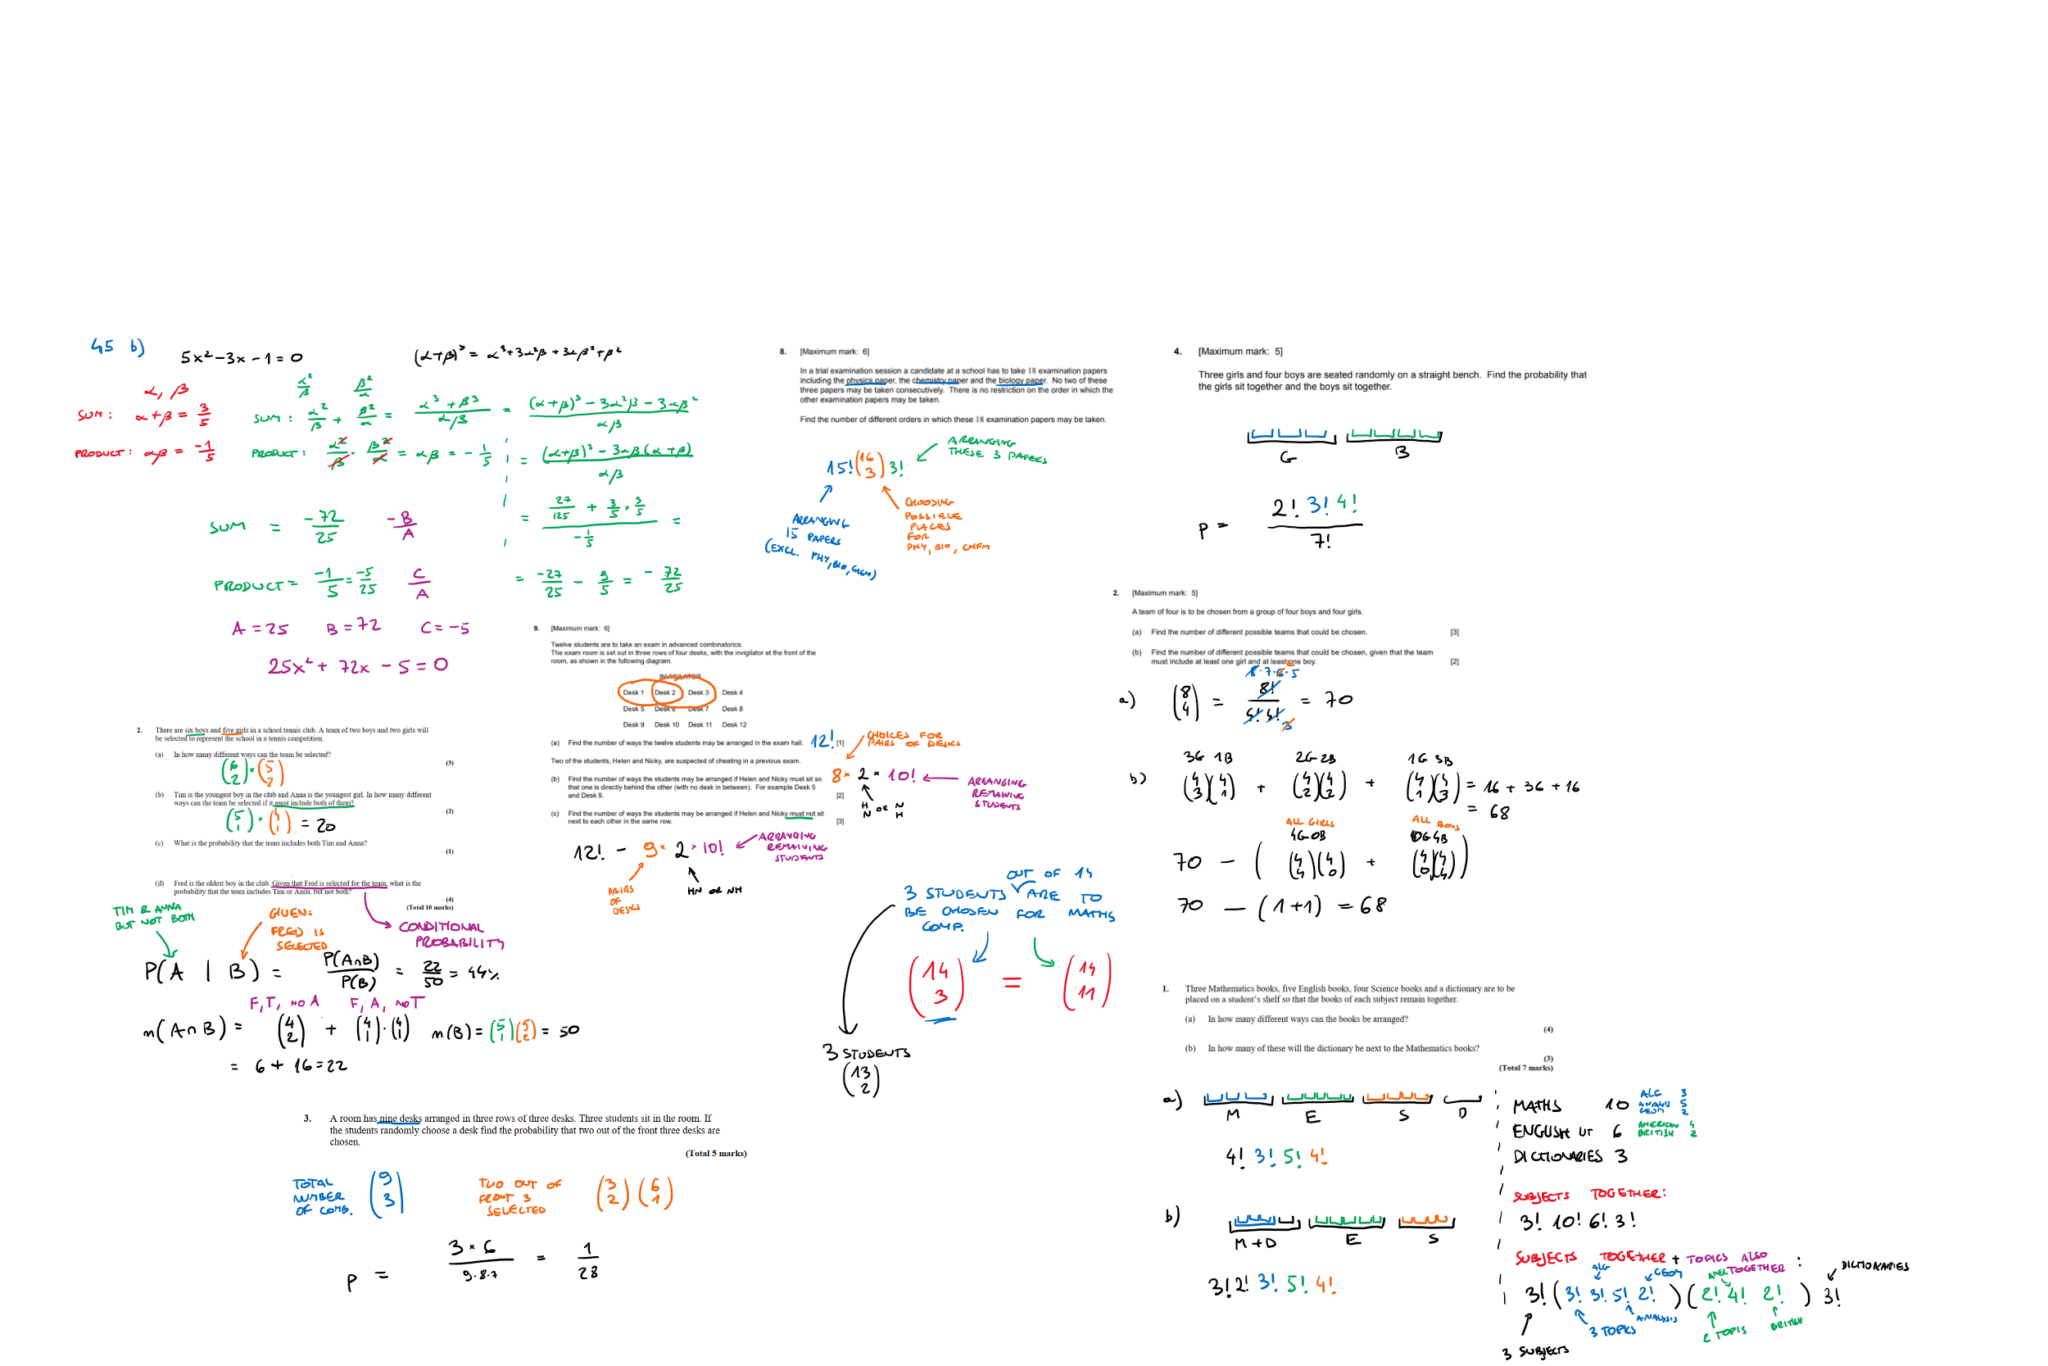 45 b)
5x² − 3x − 1 = 0
(α+β)³ = α³ + 3α²β + 3αβ² + β²
α, β
α²/β β²/α
SUM: α + β = 3/5
SUM: α²/β + β²/α = (α³ + β³)/αβ = ((α+β)³ − 3α²β − 3αβ²)/αβ
PRODUCT: αβ = −1/5
PRODUCT: α²/β · β²/α = αβ = −1/5
= ((α+β)³ − 3αβ(α+β))/αβ
SUM = −72/25 −B/A
= (27/125 + 3/5 × 3/5)/(−1/5) =
PRODUCT = −1/5 = −5/25 C/A
= −27/25 − 9/5 = −72/25
A = 25 B = 72 C = −5
25x² + 72x − 5 = 0
2. There are six boys and five girls in a school tennis club. A team of two boys and two girls will
be selected to represent the school in a tennis competition.
(a) In how many different ways can the team be selected?
(3)
(6 2) × (5 2)
(b) Tim is the youngest boy in the club and Anna is the youngest girl. In how many different
ways can the team be selected if it must include both of them?
(2)
(5 1) · (4 1) = 20
(c) What is the probability that the team includes both Tim and Anna?
(1)
(d) Fred is the oldest boy in the club. Given that Fred is selected for the team, what is the
probability that the team includes Tim or Anna, but not both?
(4)
(Total 10 marks)
TIM & ANNA
BUT NOT BOTH
GIVEN:
FRED IS
SELECTED
CONDITIONAL
PROBABILITY
P(A | B) = P(A∩B)/P(B) = 22/50 = 44%
F, T, NO A F, A, NO T
n(A∩B) = (4 2) + (4 1)·(4 1) n(B) = (5 1)(5 2) = 50
= 6 + 16 = 22
3. A room has nine desks arranged in three rows of three desks. Three students sit in the room. If
the students randomly choose a desk find the probability that two out of the front three desks are
chosen.
(Total 5 marks)
TOTAL
NUMBER
OF COMB.
(9 3)
TWO OUT OF
FRONT 3
SELECTED
(3 2)(6 1)
p = 3 × 6/9·8·7 = 1/28
8. [Maximum mark: 6]
In a trial examination session a candidate at a school has to take 18 examination papers
including the physics paper, the chemistry paper and the biology paper. No two of these
three papers may be taken consecutively. There is no restriction on the order in which the
other examination papers may be taken.
Find the number of different orders in which these 18 examination papers may be taken.
15! (16 3) 3!
ARRANGING
THESE 3 PAPERS
ARRANGING
15 PAPERS
(EXCL. PHY, BIO, CHEM)
CHOOSING
POSSIBLE
PLACES
FOR
PHY, BIO, CHEM
9. [Maximum mark: 6]
Twelve students are to take an exam in advanced combinatorics.
The exam room is set out in three rows of four desks, with the invigilator at the front of the
room, as shown in the following diagram.
INVIGILATOR
Desk 1 Desk 2 Desk 3 Desk 4
Desk 5 Desk 6 Desk 7 Desk 8
Desk 9 Desk 10 Desk 11 Desk 12
(a) Find the number of ways the twelve students may be arranged in the exam hall. 12! [1]
Two of the students, Helen and Nicky, are suspected of cheating in a previous exam.
(b) Find the number of ways the students may be arranged if Helen and Nicky must sit so
that one is directly behind the other (with no desk in between). For example Desk 5
and Desk 9.
[2]
CHOICES FOR
PAIRS OF DESKS
8 × 2 × 10!
ARRANGING
REMAINING
STUDENTS
H OR N
N H
(c) Find the number of ways the students may be arranged if Helen and Nicky must not sit
next to each other in the same row.
[3]
12! − 9 × 2 × 10!
ARRANGING
REMAINING
STUDENTS
PAIRS
OF
DESKS
HN OR NH
OUT OF 14
3 STUDENTS ARE TO
BE CHOSEN FOR MATHS
COMP.
(14 3) = (14 11)
3 STUDENTS
(13 2)
4. [Maximum mark: 5]
Three girls and four boys are seated randomly on a straight bench. Find the probability that
the girls sit together and the boys sit together.
G B
p = 2! 3! 4!/7!
2. [Maximum mark: 5]
A team of four is to be chosen from a group of four boys and four girls.
(a) Find the number of different possible teams that could be chosen. [3]
(b) Find the number of different possible teams that could be chosen, given that the team
must include at least one girl and at least one boy. [2]
8·7·6·5
a) (8 4) = 8!/4!4! = 70
3G 1B 2G 2B 1G 3B
b) (4 3)(4 1) + (4 2)(4 2) + (4 1)(4 3) = 16 + 36 + 16
= 68
ALL GIRLS ALL BOYS
4G 0B 0G 4B
70 − ((4 4)(4 0) + (4 0)(4 4))
70 − (1+1) = 68
1. Three Mathematics books, five English books, four Science books and a dictionary are to be
placed on a student's shelf so that the books of each subject remain together.
(a) In how many different ways can the books be arranged?
(4)
(b) In how many of these will the dictionary be next to the Mathematics books?
(3)
(Total 7 marks)
a)
M E S D
4! 3! 5! 4!
b)
M+D E S
3! 2! 3! 5! 4!
MATHS 10
ALG 3
ANALYS 5
GEOM 2
ENGLISH LIT 6
AMERICAN 4
BRITISH 2
DICTIONARIES 3
SUBJECTS TOGETHER:
3! 10! 6! 3!
SUBJECTS TOGETHER + TOPICS ALSO
TOGETHER :
ALG GEOM DICTIONARIES
3! (3! 3! 5! 2!) (2! 4! 2!) 3!
3 TOPICS ANALYSIS 2 TOPIS BRITISH
3 SUBJECTS